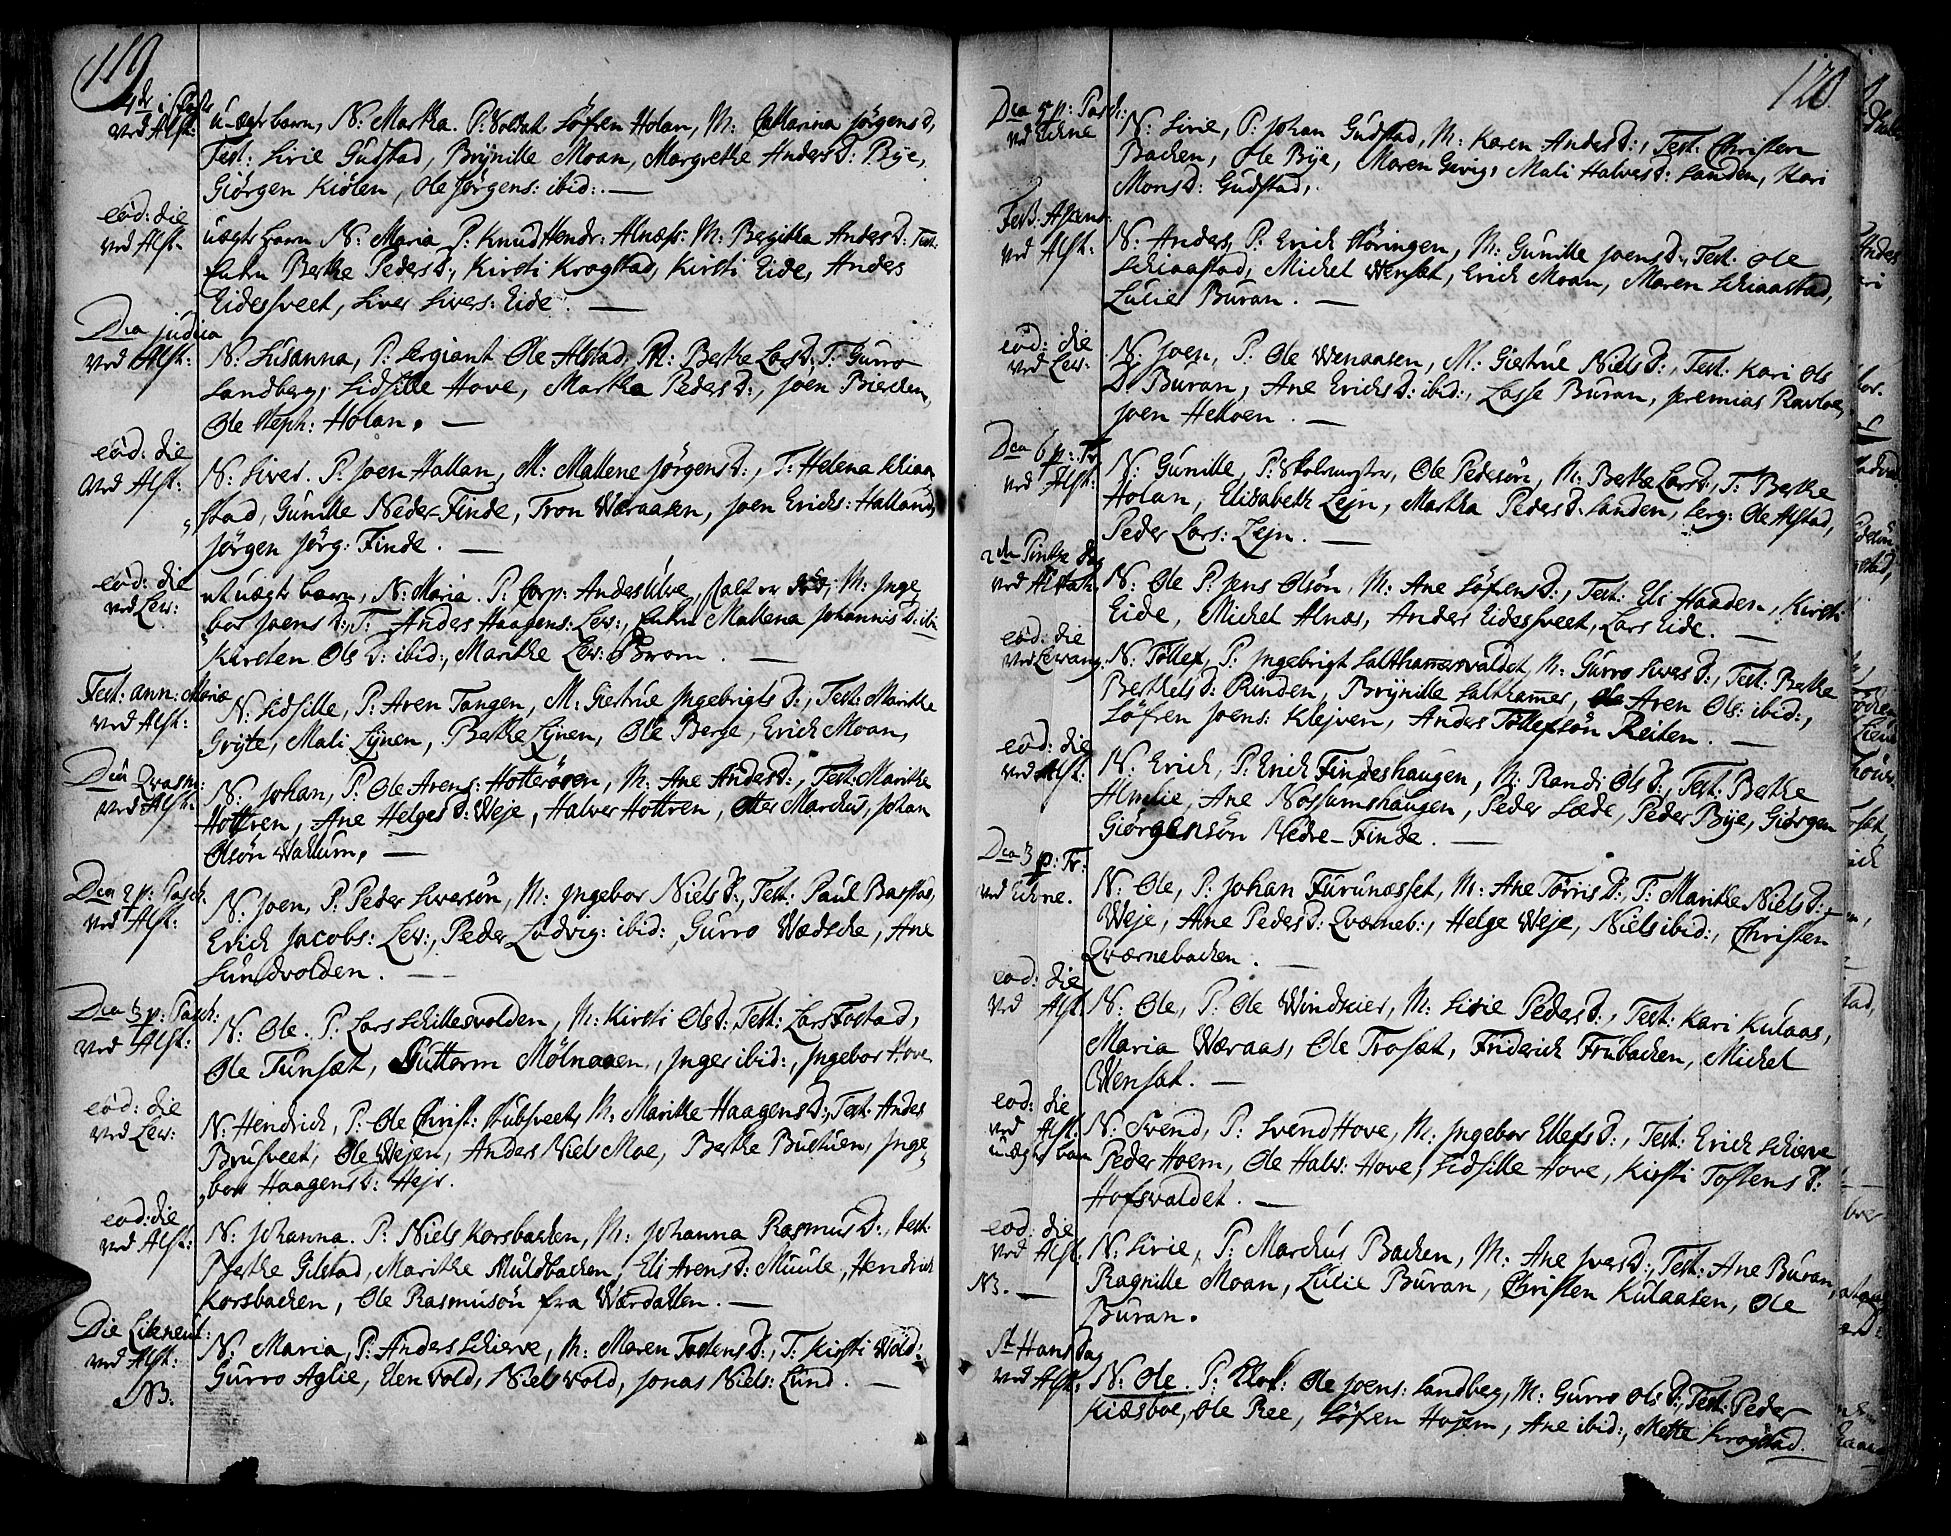 119
4de i Faste
ved Alst:
ûægte barn, N: Martha. P: Soldat Söfren Holan, M: Catharina Jörgens d,
Test: Sirie Gudstad, Brÿnille Moan, Margrethe Anders d: Bÿe,
Giörgen Kiölen, Ole Jörgens: ibid:. —
eod: die
ved Alst:
uægte barn N: Maria P: Knud Hendr: Alnæss: M: Bergitha Anders D: Test:
Enken Berthe Peders d:, Kirsti Krogstad, Kirsti Eide, Anders
Eidessveet, Siver Sivers: Eide. —
Dca Judica
ved Alst:
N: Susanna, P: Sergiant Ole Alstad, M: Berthe Lars D: T: Gurro
Landberg, Sidsille Hove, Martha Peders D:, Joen Bierchen,
Ole Steph: Holan. —
eod: die
ved Alst:
N: Siver. P: Joen Hallan, M: Mallene Jörgens D:, T: Helena Schiaa
stad, Gunille Neder-Finde, Tron Wæraasen, Joen Erichs: Halland,
Jörgen Jörg: Finde. —
eod: die
ved Lev:
et uægte barn, N: Maria. P: Corp: Anders Ulve, salt er död, M: Inge
bor Joens D:, T: Anders Haagens: Lev:, Enken Mallena Johannis D: ibi
Kirsten Ols D: ibid:, Marithe Lev: Brom. —
Fest: ann: Mariæ
ved Alst:
N: Sidsille, P: Aren Tangen, M: Giertrue Ingebrigts D:, Test: Marithe
Grÿte, Mali Lÿnen, Berthe Lÿnen, Ole Berge, Erich Moan,
Dca Qvasm:
ved Alst:
N: Johan, P: Ole Arens: Hotterösen, M: Ane Anders D:, Test: Marithe
Hottren, Ane Helges D: Weje, Halver Hottren, Otter Marchus, Johan
Olsön Wallum. —
Dca 2 p: Pasch:
ved Alst:
N: Joen, P: Peder Siversön, M: Ingebor Niels D:, Test: Paul Barstad,
Erich Jacobs: Lev:, Peder Lodvig: ibid:, Gurro Wædsche, Ane
Sundvolden. —
Dca 3 p: Pasch:
ved Alst:
N: Ole. P: Lars Schillesvolden, M: Kirsti Ols D: Test: Lars Fostad,
Ole Tunsæt, Guttorm Mölnaaen, Inger ibid:, Ingebor Hove
eod: die
ved Lev:
N: Hendrich, P: Ole Christ: Stubsveet, M: Marithe Haagens D:, Test: Anders
Brusveet, Ole Wejen, Anders Niels Moe, Berthe Buchuen, Inge
bor Haagens D: Heir.
eod: die
ved Alst:
N: Johanna. P: Niels Korsbachen, M: Johanna Rasmus D:, Test:
Berthe Gilstad, Marithe Muldbachen, Eli Arens D: Muule, Hendrich
Korsbachen, Ole Rasmusön fra Wærdallen. —
Die Litaneut:
ved Alst:
NB.
N: Maria, P: Anders Schierve, M: Maren Tostens D:, T: Kirsti Wold,
Gurro Aglie, Elen Wold, Niels Wold, Jonas Niels: Lund. —
120
Dca 5 p: Pasch:
ved Echne
N: Sirie, P: Johan Gudstad, M: Karen Anders D:, Test: Christen
Bachen, Ole Bÿe, Maren Gevig, Mali Halvers D: Sanden, Kari
Mons D: Gudstad,
Fest: Ascens
ved Alst:
N: Anders, P: Erich Höringen, M: Gunille Joens D:, Test: Ole
Schiaastad, Michel Wensæt, Erich Moan, Maren Schiaastad,
Lucie Buran. —
eod: die
ved Lev:
N: Joen, P: Ole Wenaasen, M: Giertrue Niels D:, Test: Kari Ols
D Buran, Ane Erichs D: ibid:, Lasse Buran, Jeremias Ravloe,
Joen Helloen. —
Dca 6 p: P
ved Alst:
N: Gunille, P: Skolemester, Ole Pedersön, M: Berthe Lars D:, T: Berthe
Holan, Elisabeth Lejn, Martha Peders D: Sanden, Serg: Ole Alstad,
Peder Lars: Lejn. —
2den Pintse dag
ved Alstah:
N: Ole P: Jens Olsön, M: Ane Söfrens D:, Test: Eli Haaden, Kirsti
Eide, Michel Alnæs, Anders Eidessveet, Lars Eide. —
eod: die
ved Levang.
N: Töllef, P: Ingebrigt Salthammersvaldet, M: Gurro Sivers D:, Test: Berthe
Berthels D: Rinden, Brÿnille Salthammer, Aren Ols: ibid:,
Söfren Joens: Klejven, Anders Töllefsön Reiten. —
eod: die
ved Alst:
N: Erich, P: Erich Findeshaugen, M: Randi Ols D:, Test: Berthe
Almlie, Ane Nossumshaugen, Peder Læde, Peder Bÿe, Giörgen
Giörgensön Nedre-Finde. —
Dca 3 p: Tr:
ved Echne.
N: Ole, P: Johan Furunæsset, M: Ane Torris D:, T: Marithe Niels D:
Weje, Ane Peders D: Qværneb:, Helge Weje, Niels ibid:, Christen
Qværnebachen. —
eod: die
ved Alst:
N: Ole, P: Ole Windseier, M: Sirie Peders D:, Test: Kari Kulaas,
Maria Wæraas, Ole Trosæt, Friderich Trubachen, Michel
Wensæt. —
eod: die
ved Alst:
uægte barn
N: Svend, P: Svend Hove, M: Ingebor Ellefs D:, Test: Erich Schierve
Peder Hoem, Ole Halv: Hove, Sidsille Hove, Kirsti Tostens D:
Hofsvaldet. —
eod: die
ved Alst:
NB. —
N: Sirie, P: Marchus Bachen, M: Ane Ivers D:, Test: Ane Buran,
Ragnille Moan, Lucie Buran, Christen Kulaasen, Ole
Buran.
St Hans Dag
ved Alst:
N: Ole. P: Klok: Ole Joens: Landberg, M: Gurro Ols D:, Test: Peder
Kiesboe, Ole Ree, Söfren Hojem, Ane ibid:, Mette Krogstad.